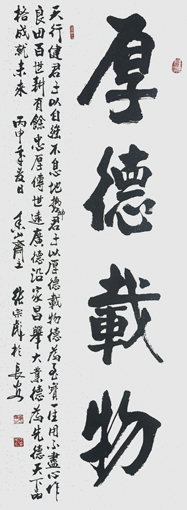 厚德載物
天行健君子以自強不息地勢坤君子以厚德載物德為至寶一生用不盡心作
良田百世耕有餘忠厚傳世遠廣德沿家昌舉大業德為先德天下品
格成就未來 丙申年夏日